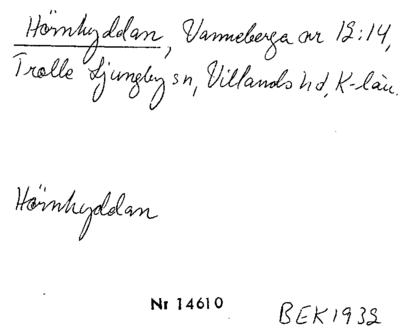 Hörnhyddan, Vanneberga nr 12:14,
Trolle Ljungby sn, Villands hd, K-län.
Hörnhyddan
Nr 14610
BEK1932